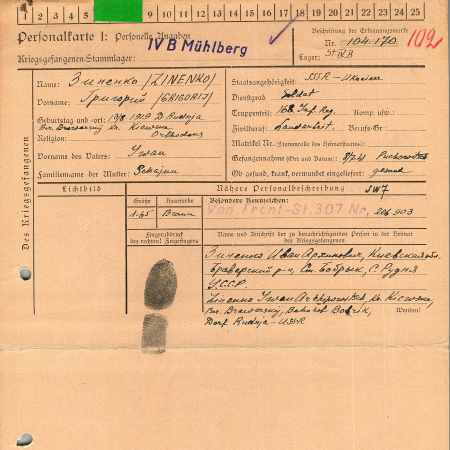 1 2 3 9 10 11 12 13 14 15 16 17 18 19 20 21 22 23 24 25
Personalkarte I: Personelle Angaben
IV B Mühlberg
Kriegsgefangenen-Stammlager:
Beschriftung der Erkennungsmarke
Nr. 104.170
102
Lager: St IV B
Des Kriegsgefangenen
Name: Зиненко /ZINENKO/
Vorname: Григорий /GRIGORIJ/
Geburtstag und -ort: 19/8 1919 D. Rudnja
Religion: Orthodox
Vorname des Vaters: Iwan
Familienname der Mutter:
Staatsangehörigkeit: SSSR - Ukrainer
Dienstgrad: Soldat
Truppenteil: 168 Inf. Reg. Komp. usw.:
Zivilberuf: Landarbeit. Berufs-Gr.:
Matrikel Nr. (Stammrolle des Heimatstaates):
Gefangennahme (Ort und Datum):
Ob gesund, krank, verwundet eingeliefert: gesund
Lichtbild
Nähere Personalbeschreibung
Größe
Haarfarbe
Besondere Kennzeichen:
1.65
Braun
Von Front-St. 307 Nr. 206903
Fingerabdruck
des rechten! Zeigefingers
Name und Anschrift der zu benachrichtigenden Person in der Heimat
des Kriegsgefangenen
Зиненко Иван Архипович, Киевская обл.
Броварский р-н, Ст. Бобрык, С. Рудня
УССР.
Zinenko Iwan Kr. Kiewska,
Bez. Browarsky, Bahnhof Bobrik,
Dorf Rudnja - USSR
Wenden!